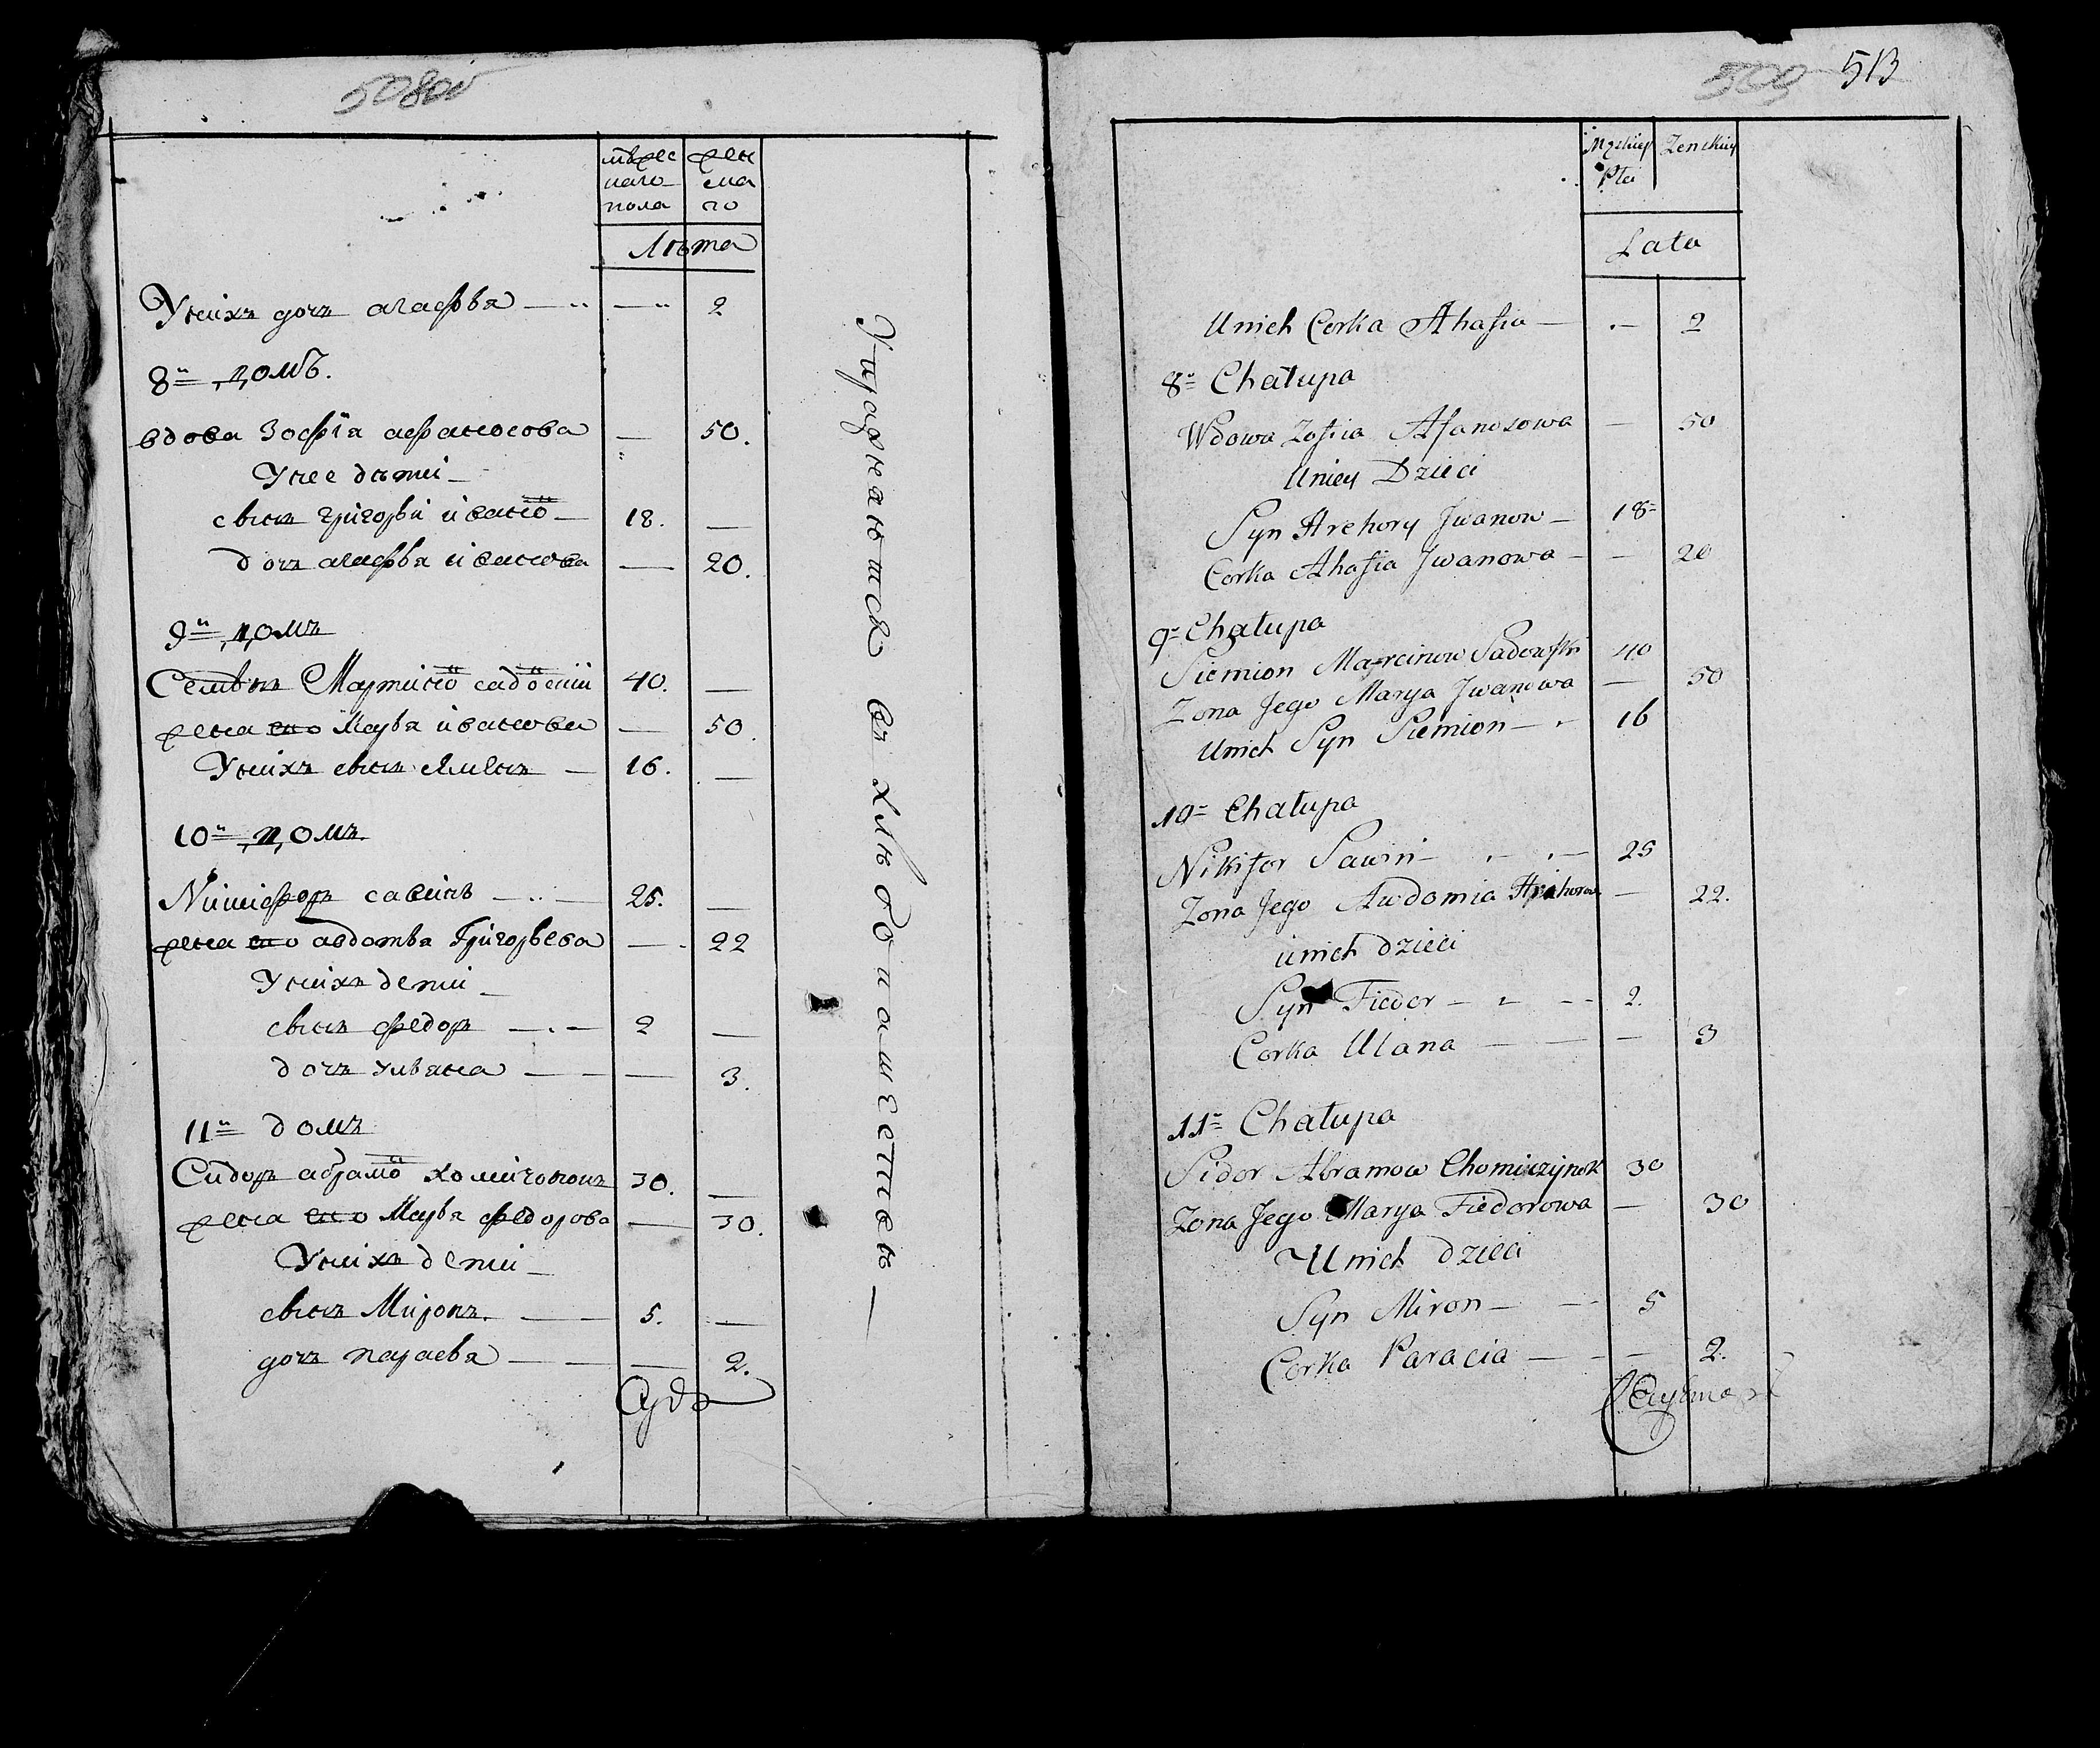 508об
мужес
каго
пола
женс
ка
го
лѣта
Унихъ дочь агафья — — 2
8й домъ.
вдова Зофїя афанасова — 50.
Унее дѣти
сынъ григорьи иванов 18. —
дочь агафья иванова — 20.
9й домъ
Семіонъ Мартинов садовскій 40. —
жена его Марья иванова — 50.
Унихъ сынъ 16. —
10й домъ
Никифоръ савинъ — 25. —
жена его авдотья Григорьева — 22
Унихъ дети
сынъ федоръ — 2 —
дочь ульяна — — 3.
11й домъ
Сидоръ абрамов 30. —
жена его Марья федорова — 30.
Унихъ дети
сынъ Миронъ. — 5. —
дочь парасья — — 2.
Судь
Упражняются въ хлѣбопашествѣ —
509 513
Męzkiey
Płci
Zenskiey
Lata
Unich Corka Ahafia — — 2
8= Chałupa
Wdowa Zofiia Afanosowa — 50
Uniey Dzieci
Syn Hrehory Jwanow — 18=
Corka Ahafia Jwanowa — — 20
9= Chałupa
Siemion Marcinow Sadowski 40
Zona Jego Marya Jwanowa — 50
Unich Syn Siemion — 16
10= Chałupa
Nikifor Sawin — 25
Zona Jego Awdomia — 22.
unich dzieci
Syn Fiedor — 2.
Corka Ulana — — 3
11= Chałupa
Sidor Abramow 30
Zona Jego Marya Fiedorowa — 30
Unich dzieci
Syn Miron — 5
Corka Paracia — — 2.